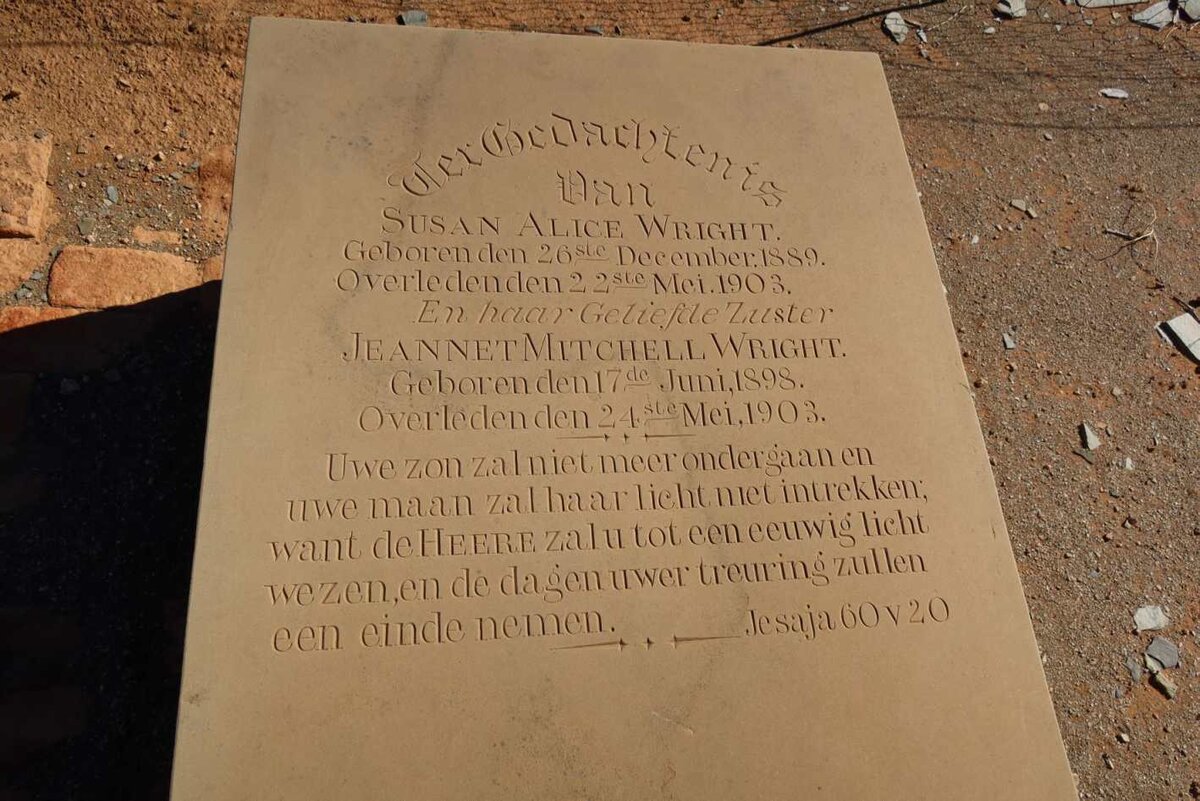 Ter Gedachtenis
Van
SUSAN ALICE WRIGHT.
Geboren den 26ste December, 1889.
Overleden den 22ste Mei. 1903.
En haar Geliefde Zuster
JEANNET MITCHELL WRIGHT.
Geboren den 17de Juni, 1898.
Overleden den 24ste Mei, 1903.
Uwe zon zal niet meer ondergaan en
uwe maan zal haar licht niet intrekken;
want de HEERE zal u tot een eeuwig licht
wezen, en de dagen uwer treuring zullen
een einde nemen. Jesaja 60 v 20